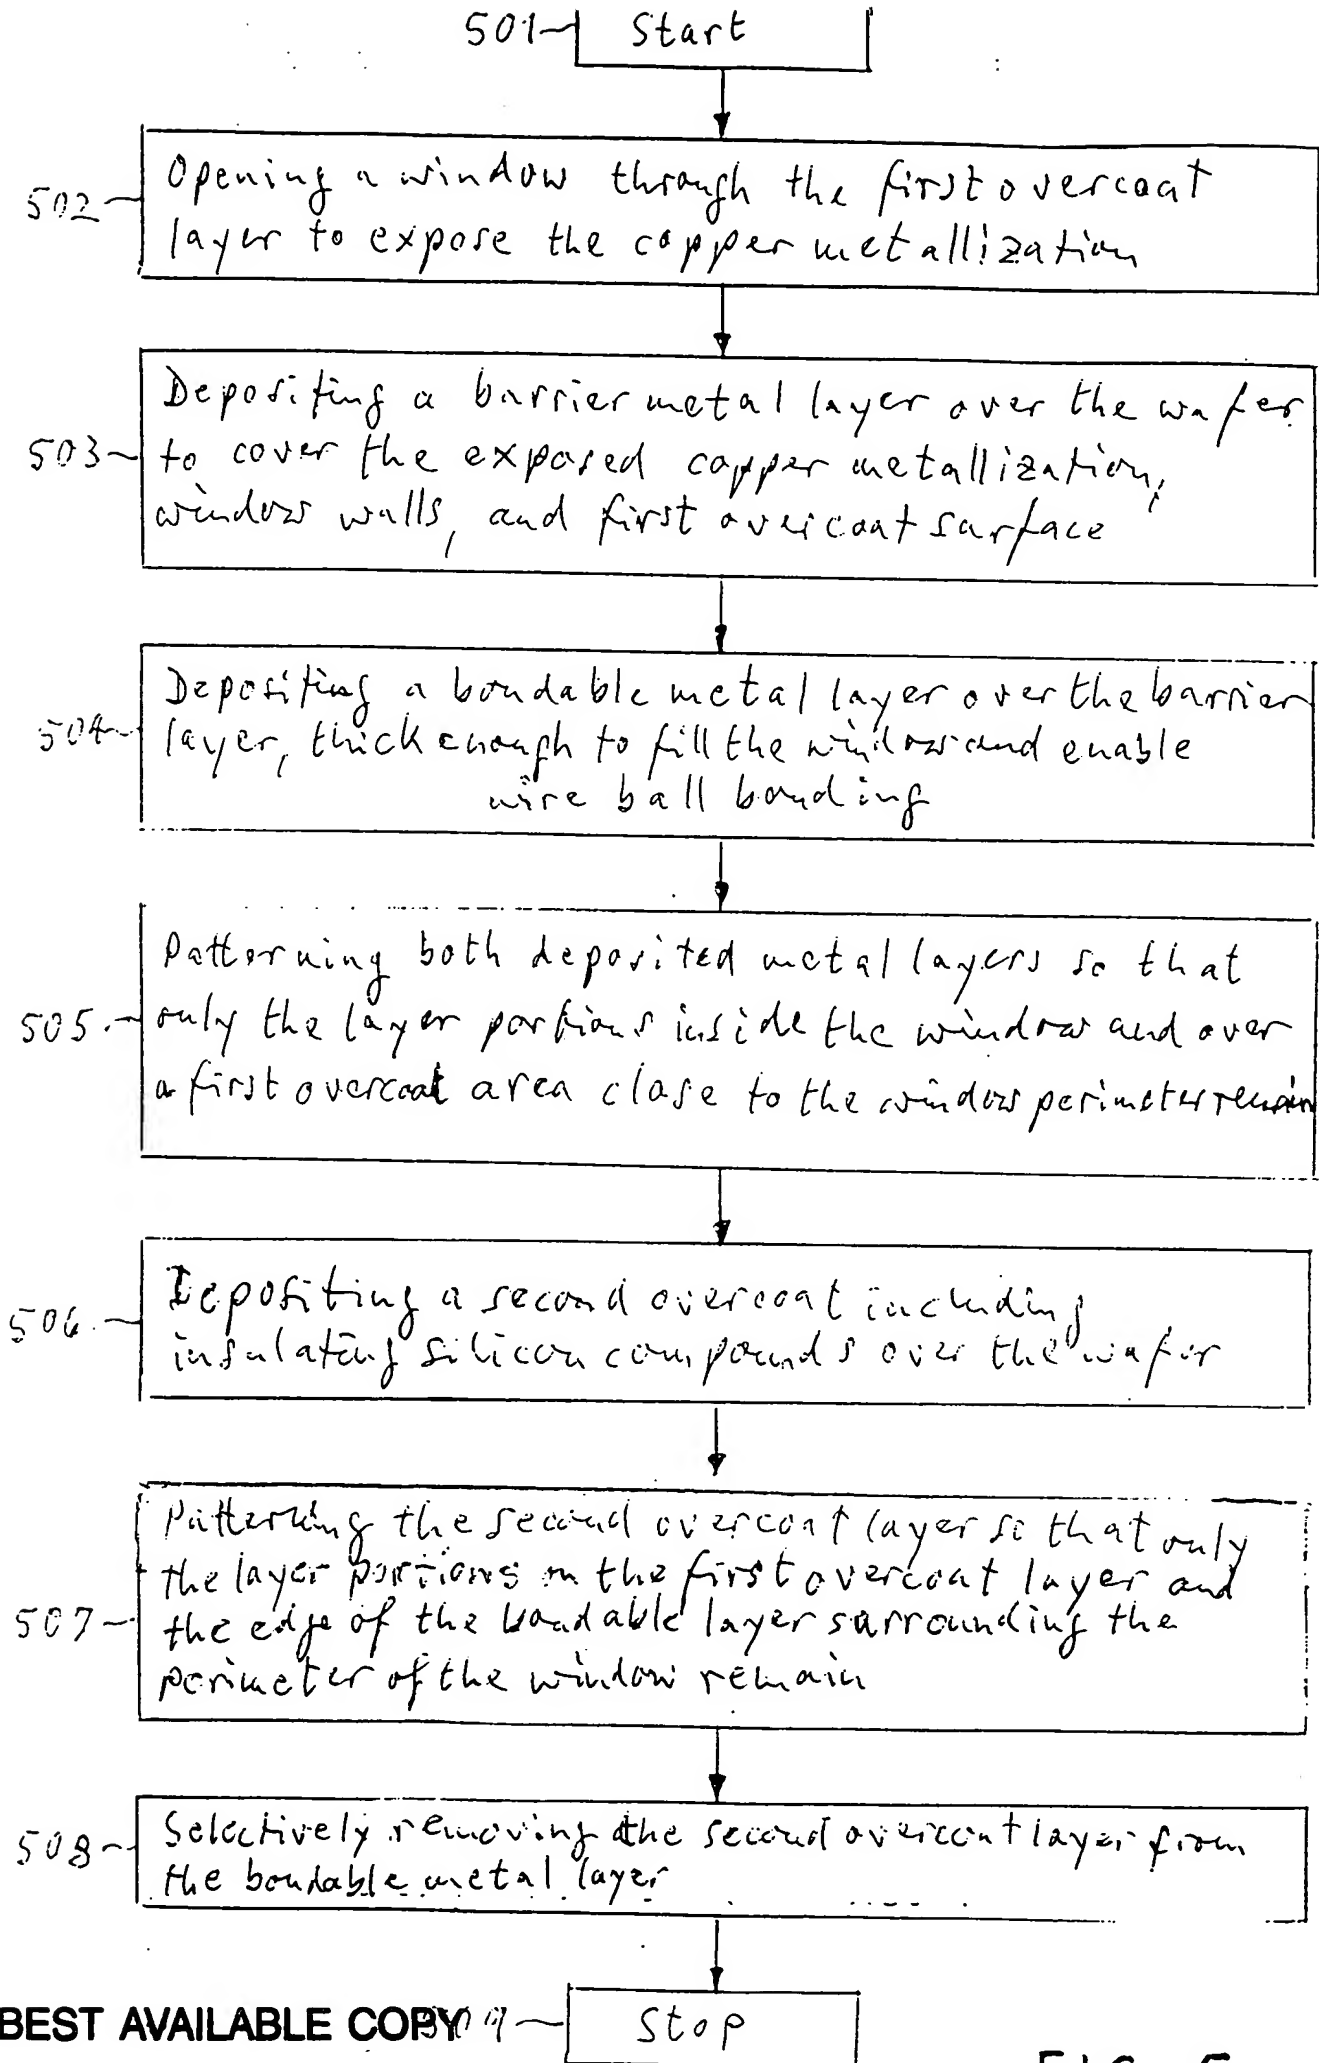 501 Start
502 Opening a window through the first overcoat
layer to expose the copper metallization
Depositing a barrier metal layer over the wafer
503 to cover the exposed copper metallization,
window walls, and first overcoat surface
Depositing a bondable metal layer over the barrier
504 layer, thick enough to fill the window and enable
wire ball bonding
Patterning both deposited metal layers so that
505 only the layer portions inside the window and over
a first overcoat area close to the window perimeter remain
506 Depositing a second overcoat including
insulating silicon compounds over the wafer
Patterning the second overcoat layer so that only
the layer portions on the first overcoat layer and
507 the edge of the bondable layer surrounding the
perimeter of the window remain
508 Selectively removing the second overcoat layer from
the bondable metal layer
BEST AVAILABLE COPY Stop